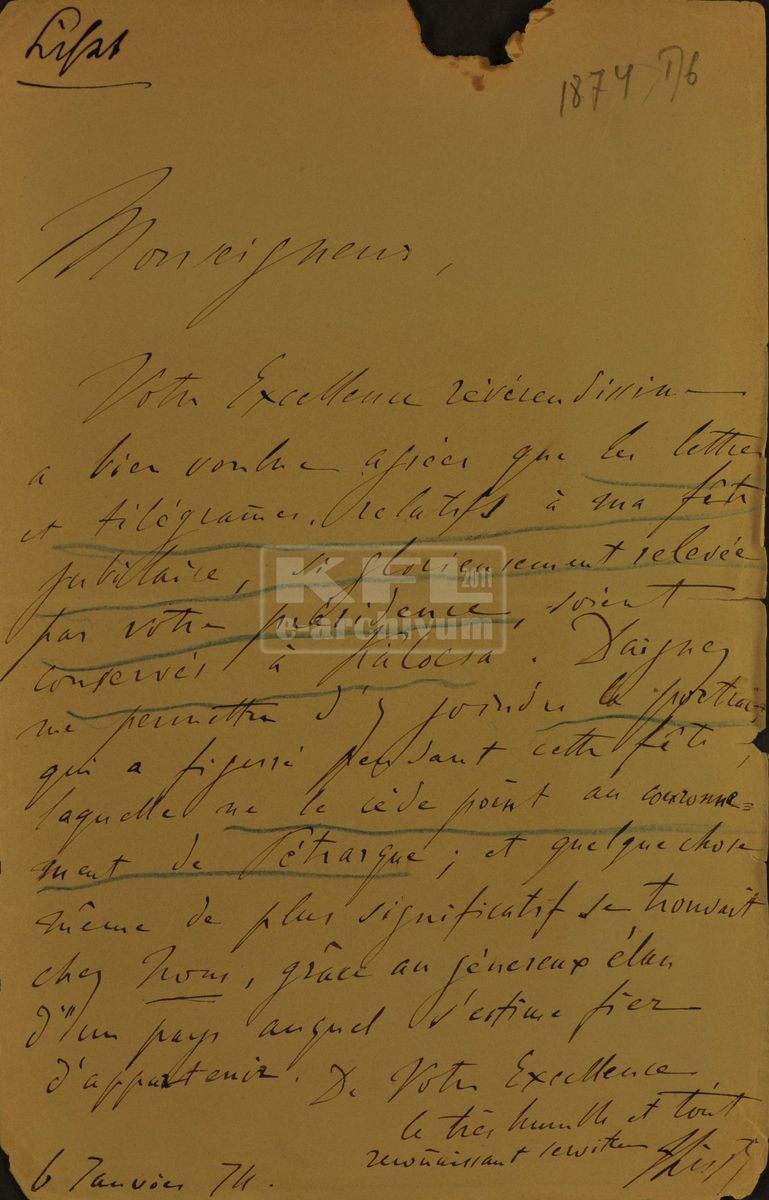 Liszt
1874 I/6
Monseigneur,
Votre Excellence révérendissime
a bien voulu agréer que les lettres
et télégrammes, relatifs à ma fête
jubilaire, si glorieusement relevée
par votre présidence, soient
conservés à Kalocsa. Daignez
me permettre d'y joindre le portrait
qui a figuré pendant cette fête,
laquelle ne le cède point au couronne=
ment de Pétrarque; et quelque chose
même de plus significatif se trouvait
chez Nous, grâce au généreux élan
d'un pays auquel s'estime fier
d'appartenir. De Votre Excellence
le très humble et tout
reconnaissant serviteur
FLiszt
6 Janvier 74.
KFL
2011
e archívum